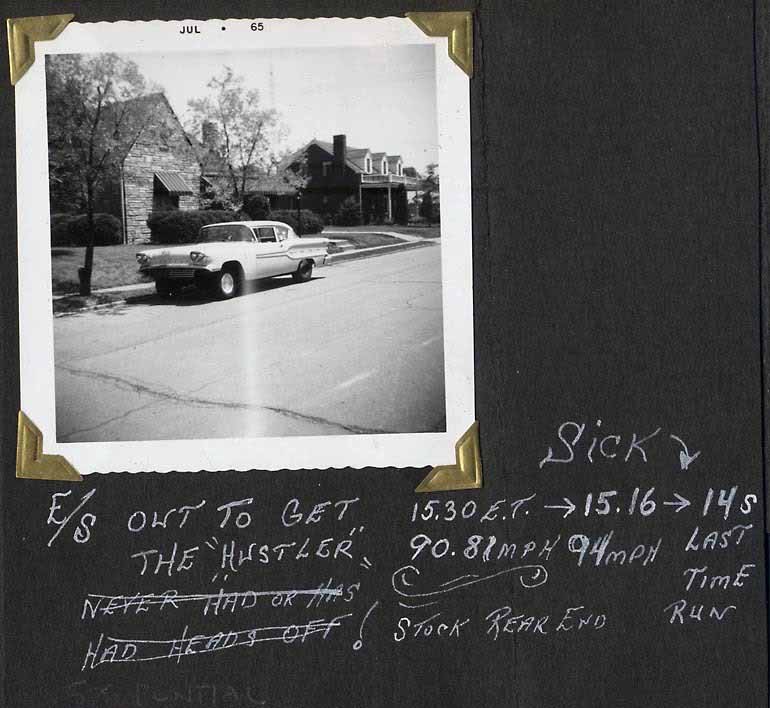 JUL • 65
SICK
E/S OUT TO GET
THE "HUSTLER"
NEVER HAD OR HAS
HAD HEADS OFF!
15.30 E.T. → 15.16 → 14s
90.81MPH 94MPH LAST
TIME
STOCK REAR END RUN
PONTIAC